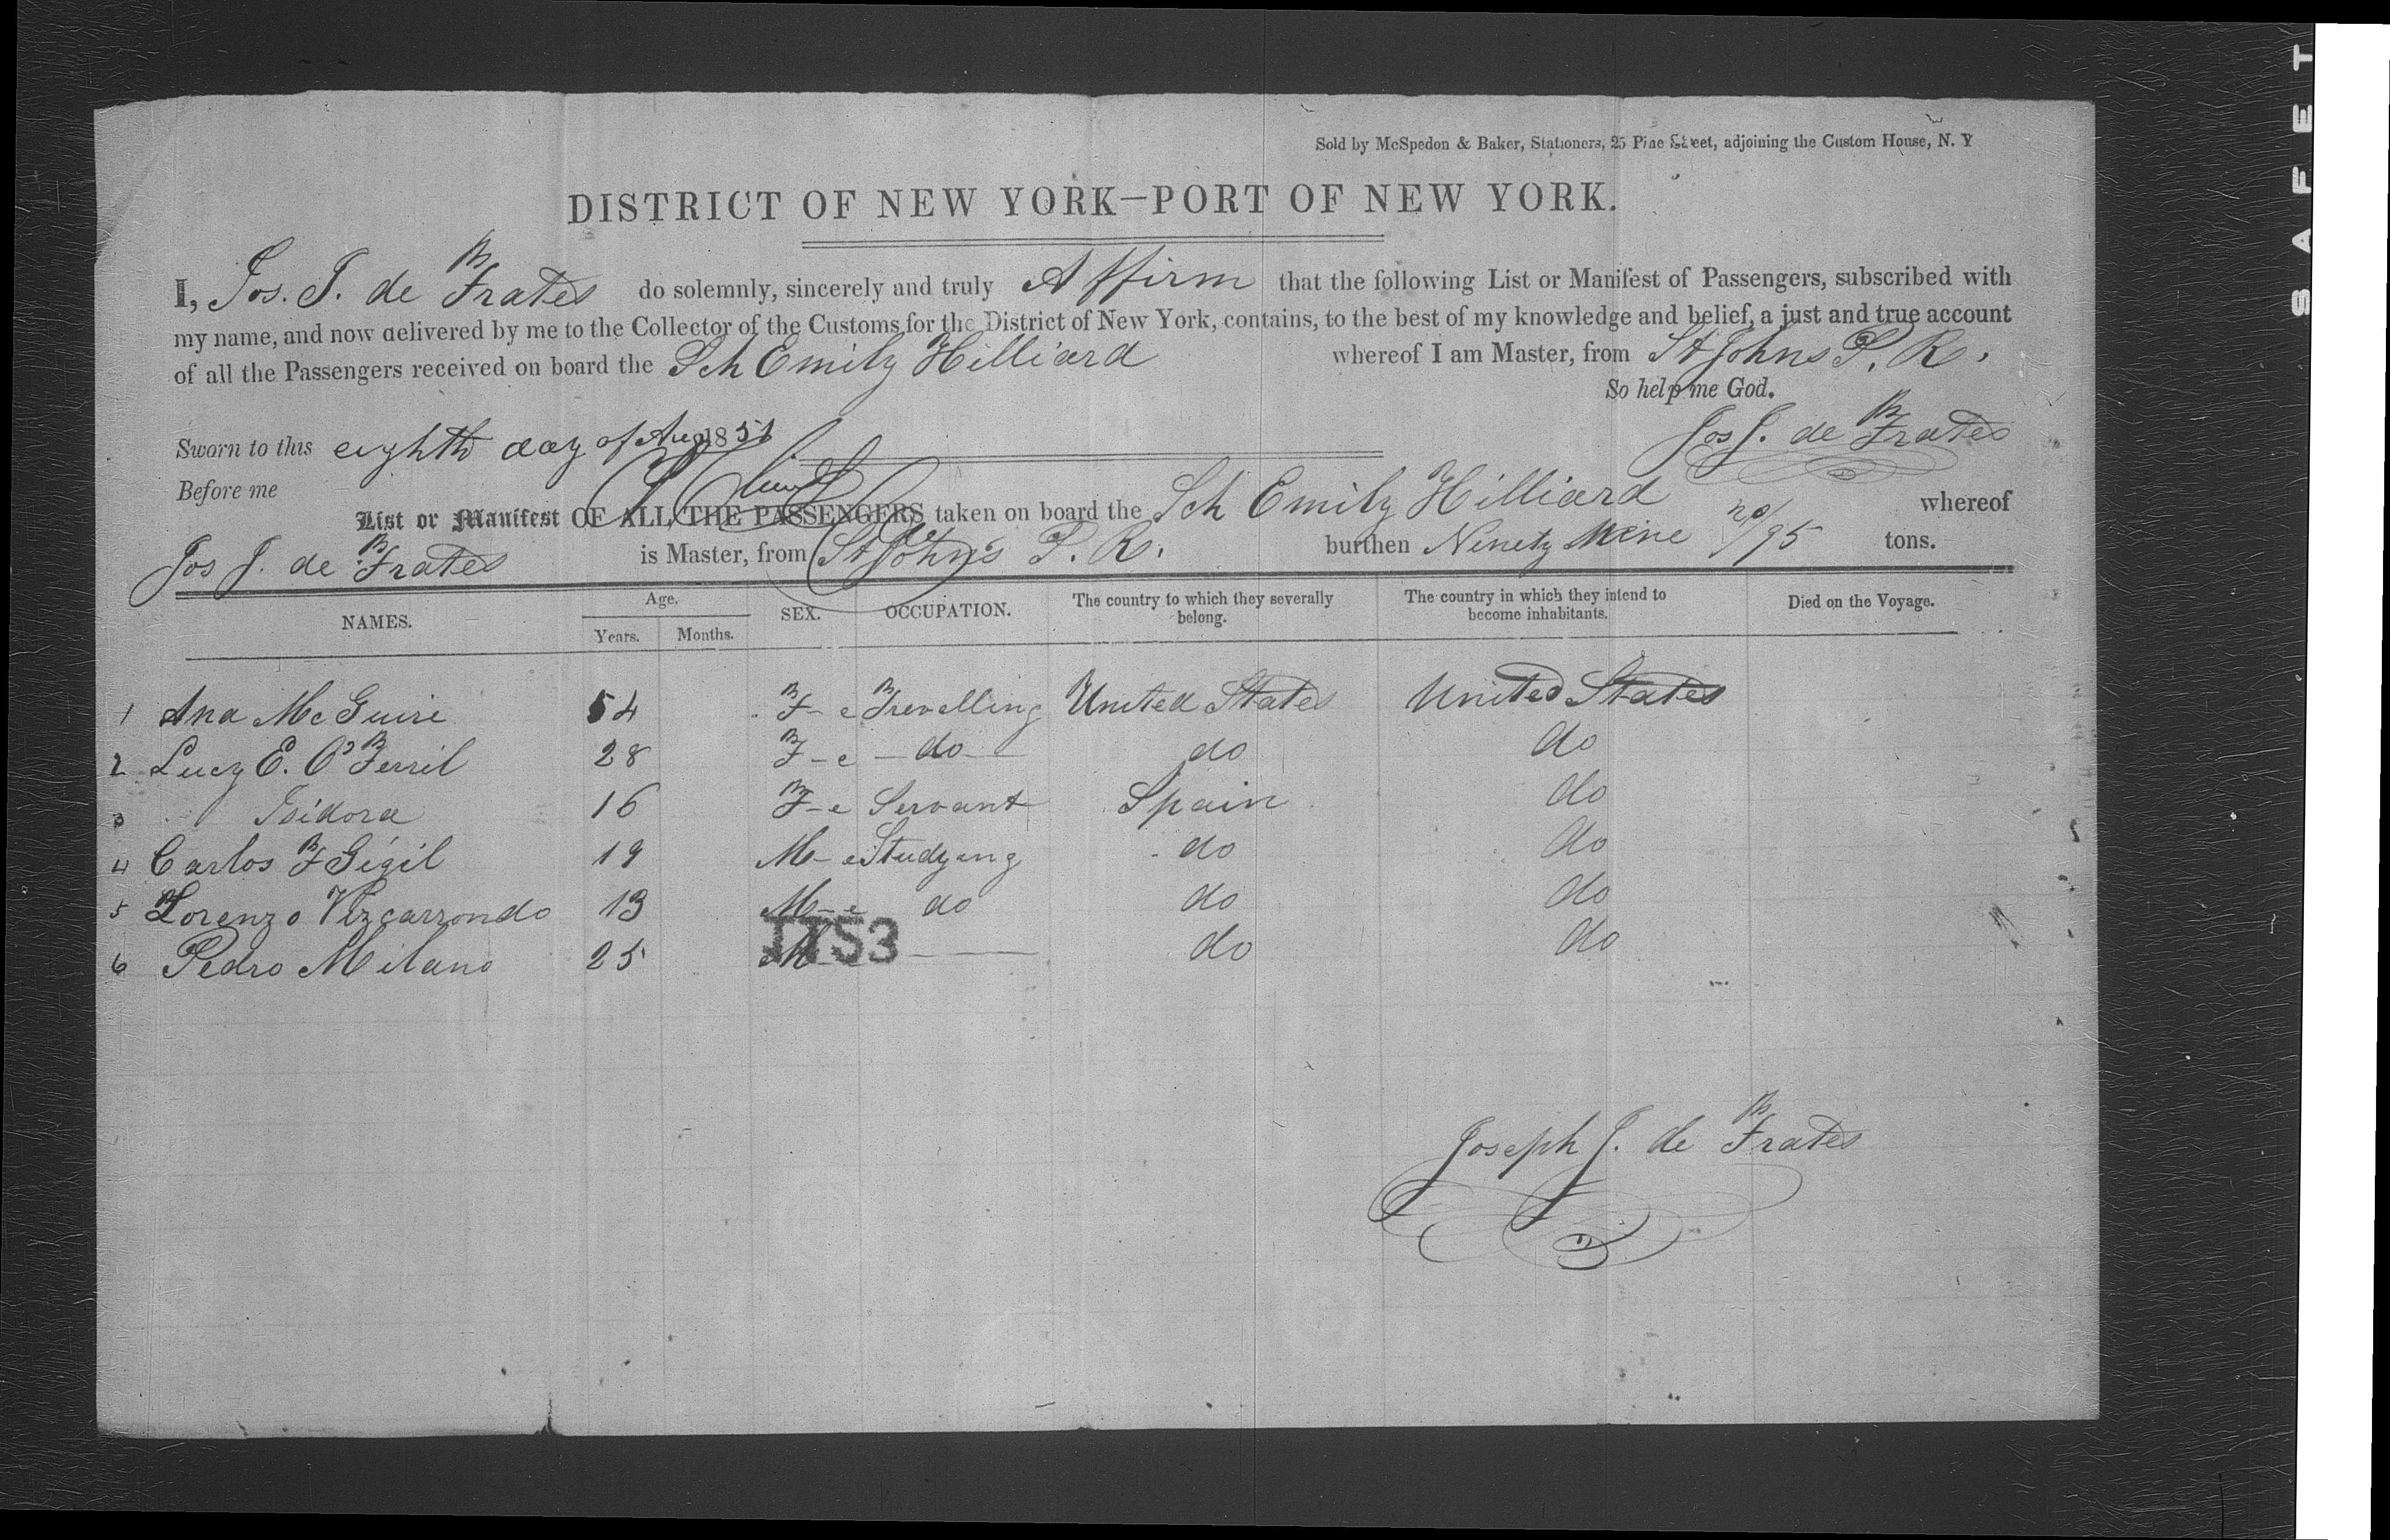 SAFET
Sold by McSpedon & Baker, Stationers, 25 Pine Street, adjoining the Custom House, N. Y
DISTRICT OF NEW YORK—PORT OF NEW YORK.
I, Jos. J. de Frates do solemnly, sincerely and truly Affirm that the following List or Manifest of Passengers, subscribed with
my name, and now delivered by me to the Collector of the Customs for the District of New York, contains, to the best of my knowledge and belief, a just and true account
of all the Passengers received on board the Sch Emily Hilliard whereof I am Master, from St Johns P. R.
So help me God.
Sworn to this eighth day of Aug 1851 Jos J. de Frates
Before me
List or Manifest OF ALL THE PASSENGERS taken on board the Sch Emily Hilliard whereof
Jos J. de Frates is Master, from St Johns P. R. burthen Ninety Nine 20/95 tons.
NAMES. Age. Years. Months. SEX. OCCUPATION. The country to which they severally belong. The country in which they intend to become inhabitants. Died on the Voyage.
1 Ana McGuire 54 F-e Trevelling United States United States
2 Lucy E. O'Ferril 28 F-e do do do
3 Isidora 16 F-e Servant Spain do
4 Carlos F Gigil 19 M-e Studying do do
5 Lorenzo Vizcarrondo 13 M-e do do do
6 Pedro Milano 25 M do do
1153
Joseph J. de Frates